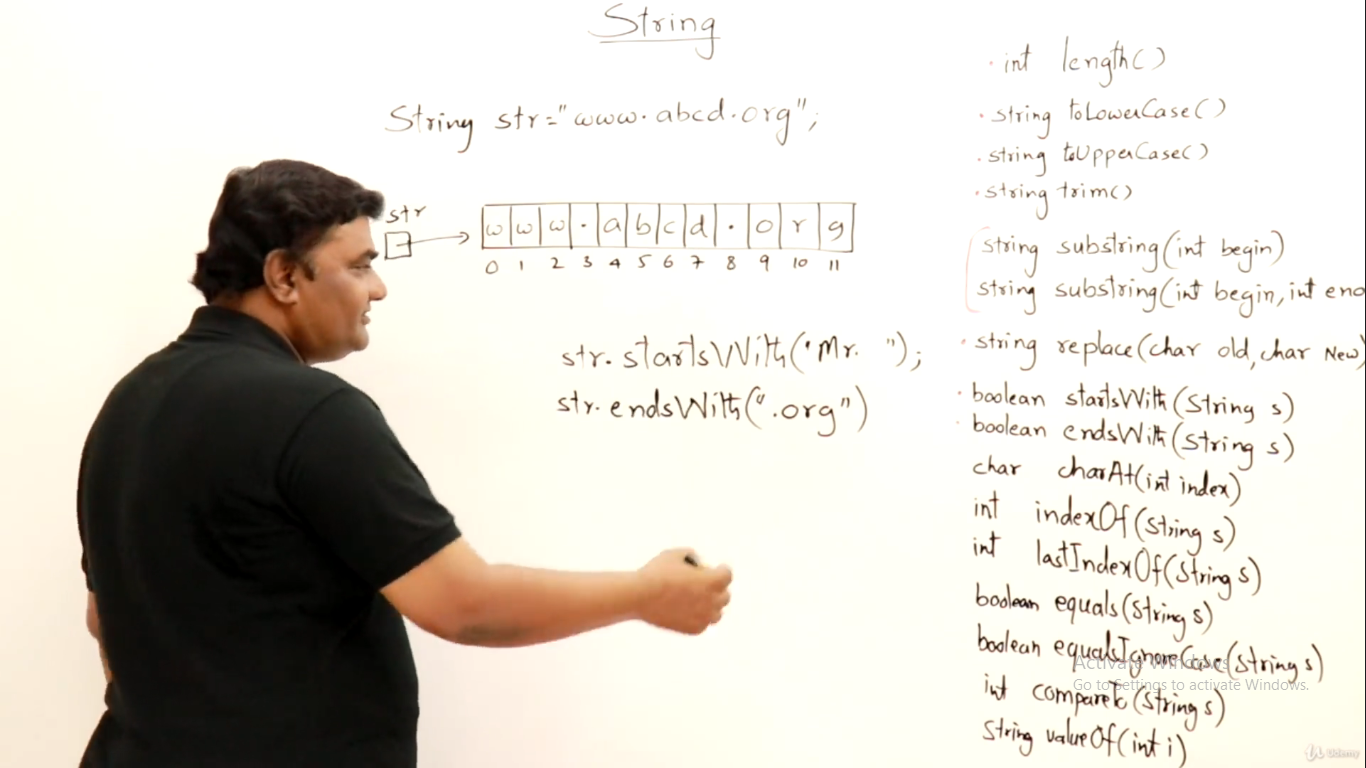 String
String str="www.abcd.org";
str
w w w . a b c d . o r g
0 1 2 3 4 5 6 7 8 9 10 11
str.startsWith("Mr. ");
str.endsWith(".org")
· int length()
· string toLowerCase()
· string toUpperCase()
· string trim()
string substring(int begin)
string substring(int begin, int end
· string replace(char old, char New)
· boolean startsWith(String s)
· boolean endsWith(String s)
char charAt(int index)
int indexOf(String s)
int lastIndexOf(String s)
boolean equals(String s)
boolean equalsIgnoreCase(String s)
int compareTo(String s)
String valueOf(int i)
Activate Windows
Go to Settings to activate Windows.
Udemy